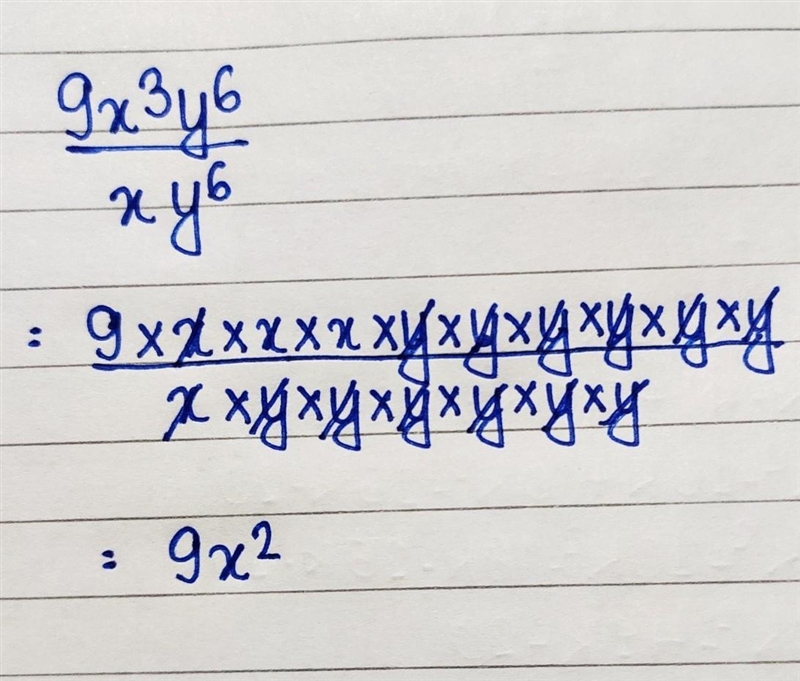 9x³y⁶
xy⁶
= 9×x×x×x×y×y×y×y×y×y
x×y×y×y×y×y×y
= 9x²